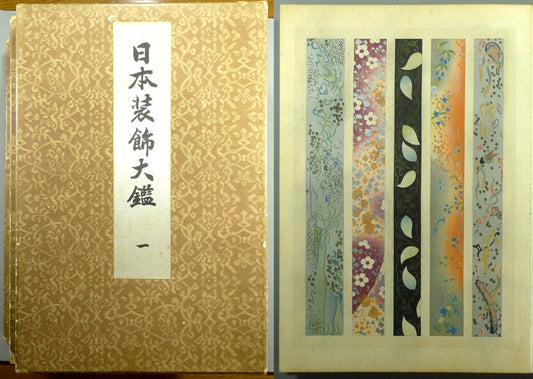 日本装飾大鑑
一